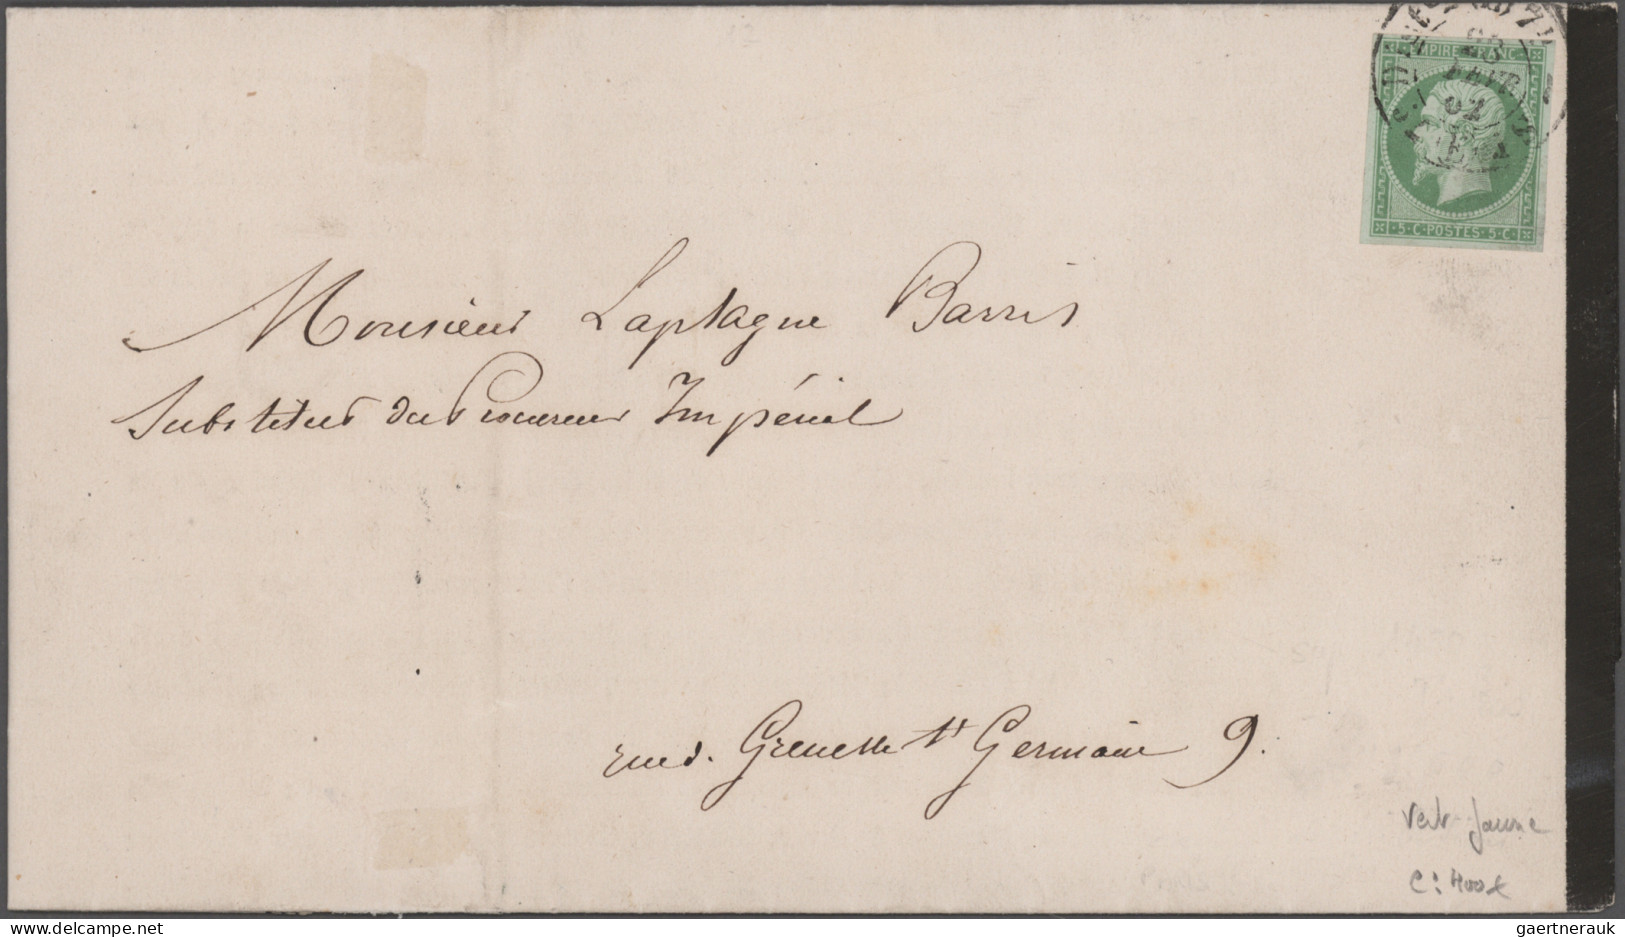 EMPIRE FRANC
5·C·POSTES·5·C
Monsieur Laplagne Barris
Substitut du Procureur Impérial
rue d. Grenelle St Germain 9.
Vert-Jaune
C: 400 €
gaertnerauk
delcampe.net